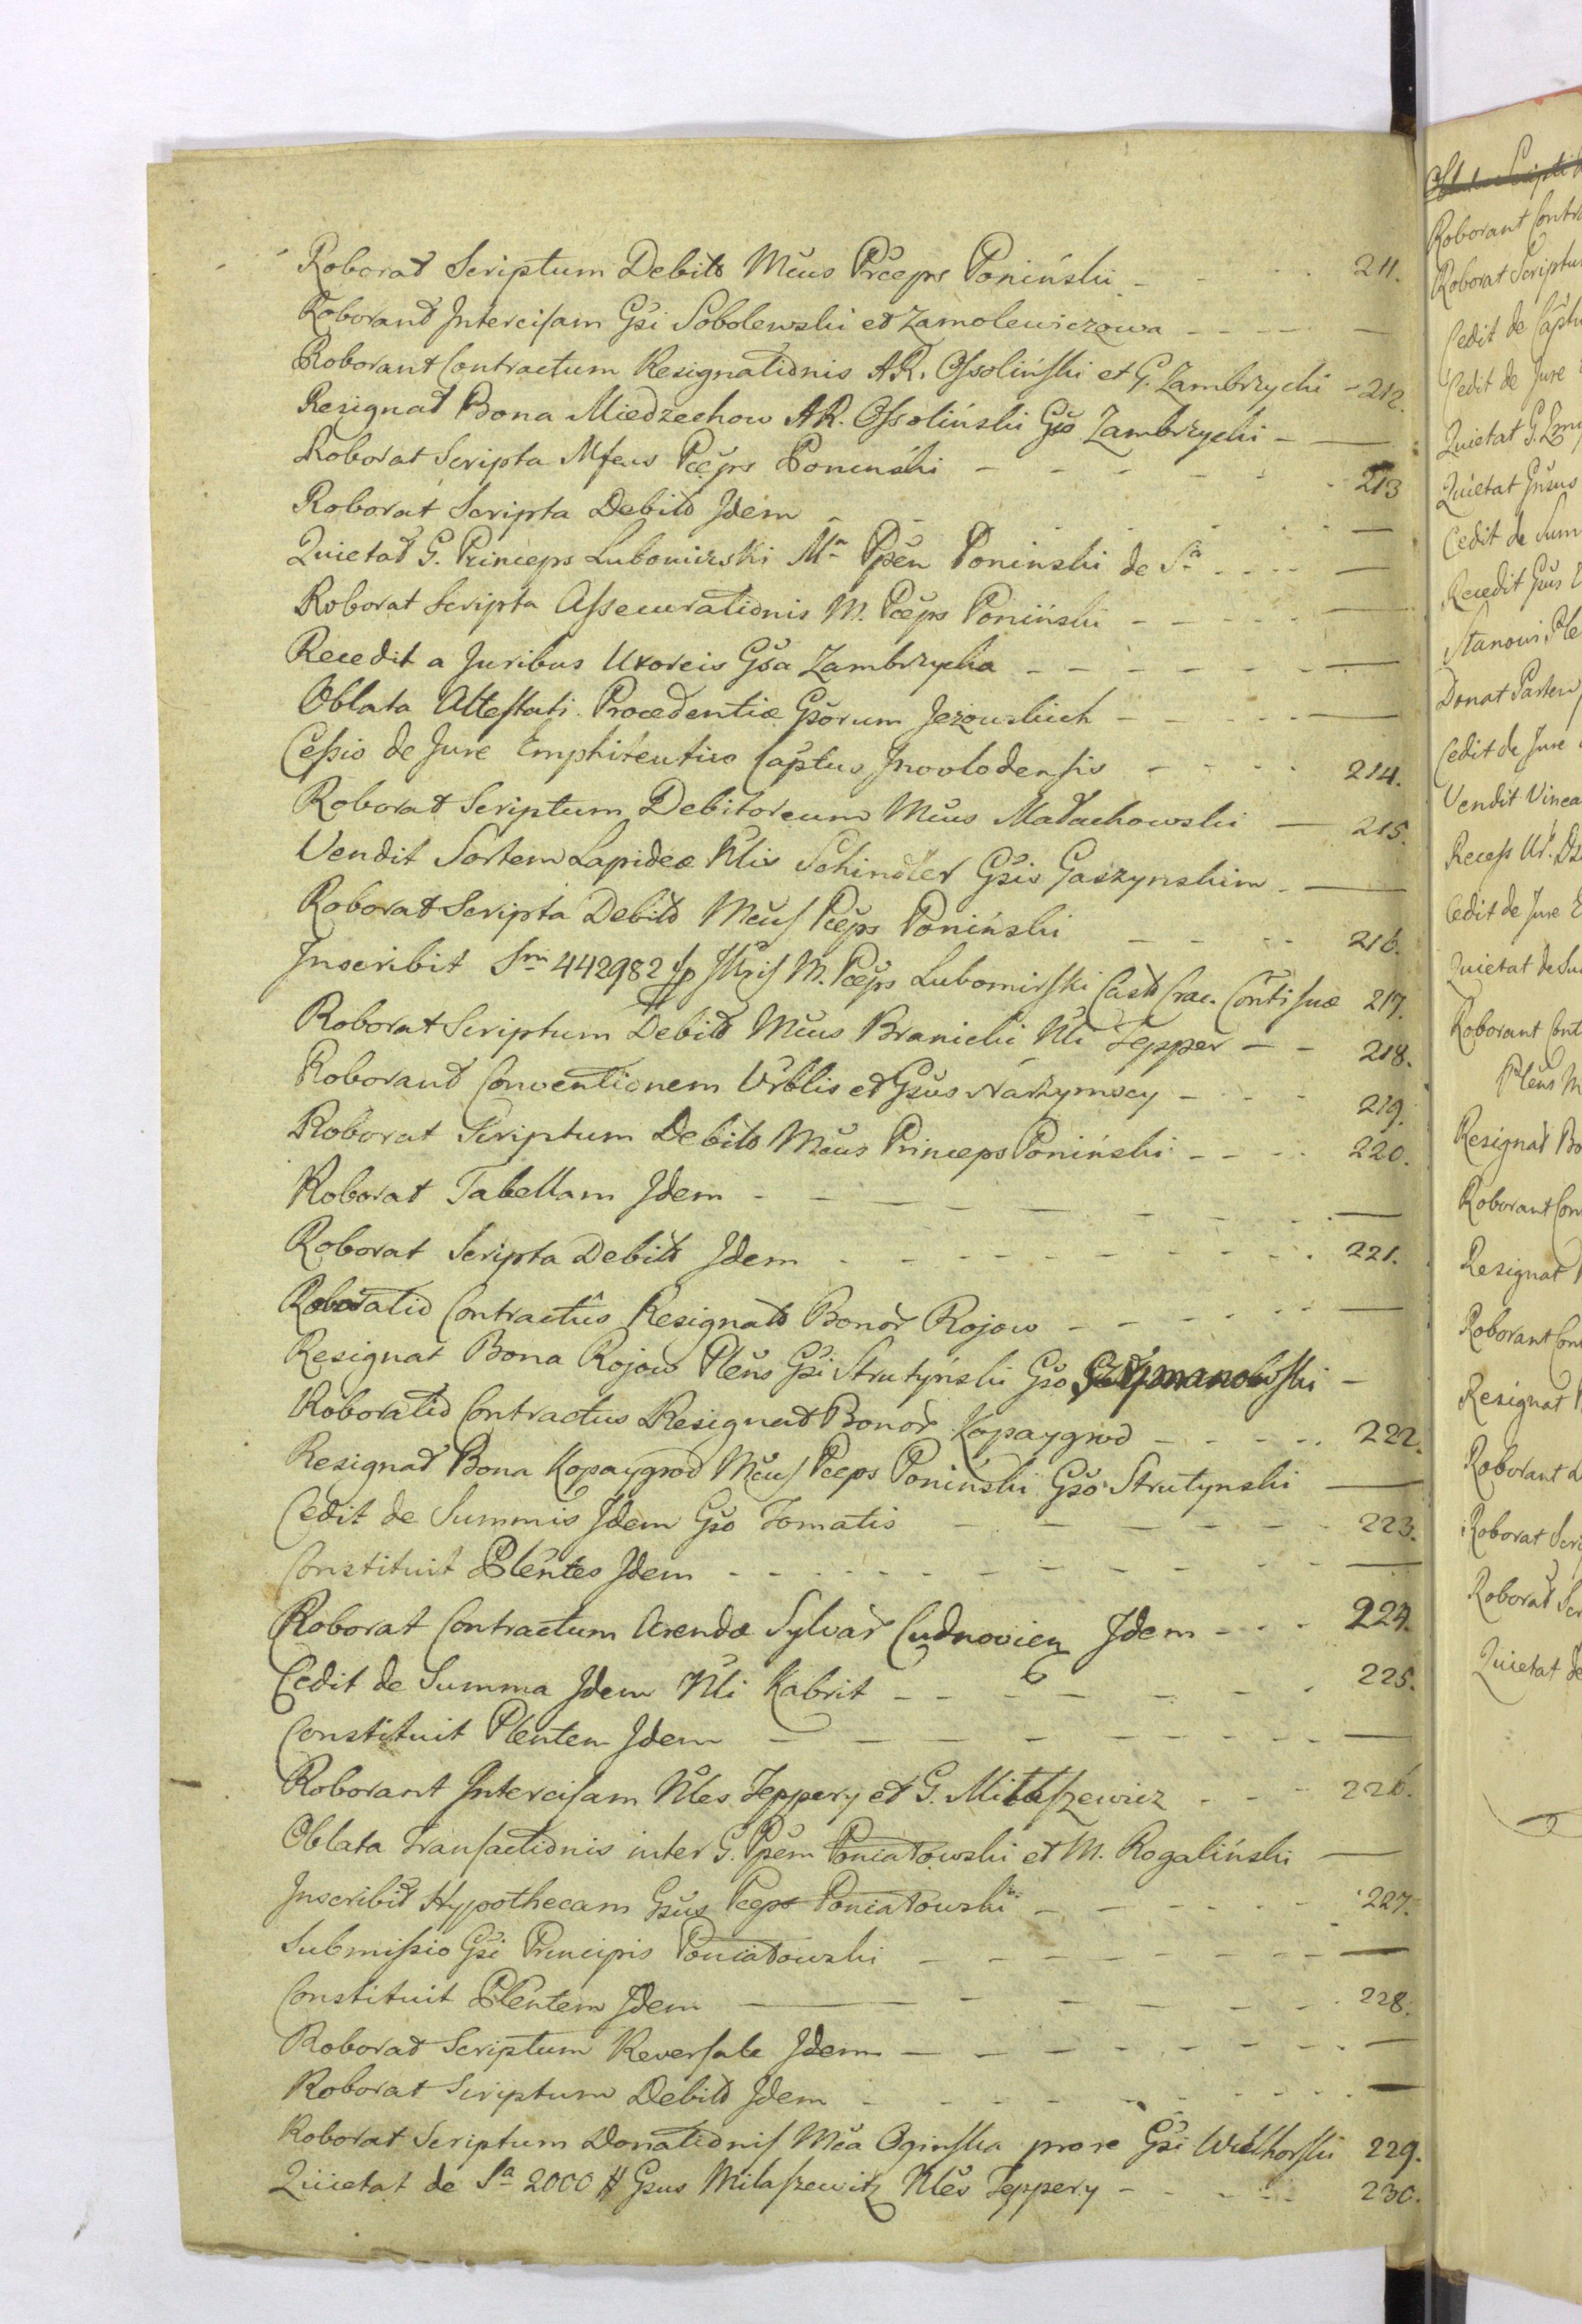 Roborat Scriptum Debito Mcus Prceps Poniński - - - 211.
Roborant Intercisam Gsi Sobolewski et Zamolewiczowa - - - —
Roborant Contractum Resignationis AR. Ossoliński et G. Zambrzycki - 212.
Resignat Bona Miedzechow AR. Ossoliński Gso Zambrzycki - —
Roborat Scripta Pceps Poninski - - - - - 213
Roborat Scripta Debito Idem - - - - - —
Quietat G. Princeps Lubomirski Ma Ppem Poninski de Sa - - - —
Roborat Scripta Assecurationis M. Pceps Poniński - - - - —
Recedit a Juribus Uxoreis Gsa Zambrzycka - - - - - —
Oblata Attestati Procedentiæ Gsorum Jezowskich - - - - —
Cessio de Jure Emphiteutico Captus Inovlodensis - - - - 214.
Roborat Scriptum Debitoreum Mcus Małachowski — 215.
Vendit Sortem Lapideæ Nlis Schindler Gsis Gaszynskim - —
Roborat Scripta Debito Mcus Pceps Poniński - - - - 216.
Inscribit Sm 442982 M. Pceps Lubomirski Cast Crac. Conti suæ 217.
Roborat Scriptum Debito Mcus Branicki Nli Tepper - - 218.
Roborant Conventionem Urblis et Gsus Narzymscy - - - 219.
Roborat Scriptum Debito Mcus Princeps Poniński - - - - 220.
Roborat Tabellam Idem - - - - - - —
Roborat Scripta Debito Idem - - - - - - 221.
Roboratio Contractus Resignato Bonor Rojow - - - - - —
Resignat Bona Rojow Plens Gsi Strutyński Gso Szymanowski -
Roboratio Contractus Resignat Bonor Kopaygrod - - - - 222.
Resignat Bona Kopaygrod Mcus Pceps Poniński Gso Strutynski —
Cedit de Summis Idem Gso Tomatis - - - - - 223.
Constituit Plentes Idem - - - - - - - —
Roborat Contractum Arendæ Sylvar Cudnovien Idem - - - 224.
Cedit de Summa Idem Nli Kabrit - - - - - 225.
Constituit Plentem Idem - - - - - - —
Roborant Intercisam Nles Teppery et G. Milaszewicz - - - 226.
Oblata Transactionis inter G. Ppem Poniatowski et M. Rogaliński —
Inscribit Hypothecam Gsus Pceps Poniatowski - - - - - 227.
Submissio Gsi Principis Poniatowski - - - - - —
Constituit Plentem Idem — - - - - - 228.
Roborat Scriptum Reversale Idem - - - - - - —
Roborat Scriptum Debito Idem - - - - - - —
Roborat Scriptum Donationis Mca Oginska prore Gsi Wielhorski 229.
Quietat de Sa 2000 # Gsus Milaszewitz Nles Teppery - - - - 230.
Roborant Contr
Roborat Scriptu
Cedit de Captu
Cedit de Jure
Quietat G.
Quietat Gnsus
Cedit de Sum
Recedit Gsus
Donat Partem
Cedit de Jure
Vendit Vinea
Recess Ur.
Cedit de Jure E
Quietat de Su
Roborant Cont
Plens M
Resignat Bo
Roborant Con
Resignat
Roborant Con
Resignat
Roborant
Roborat Scri
Roborat Scr
Quietat de